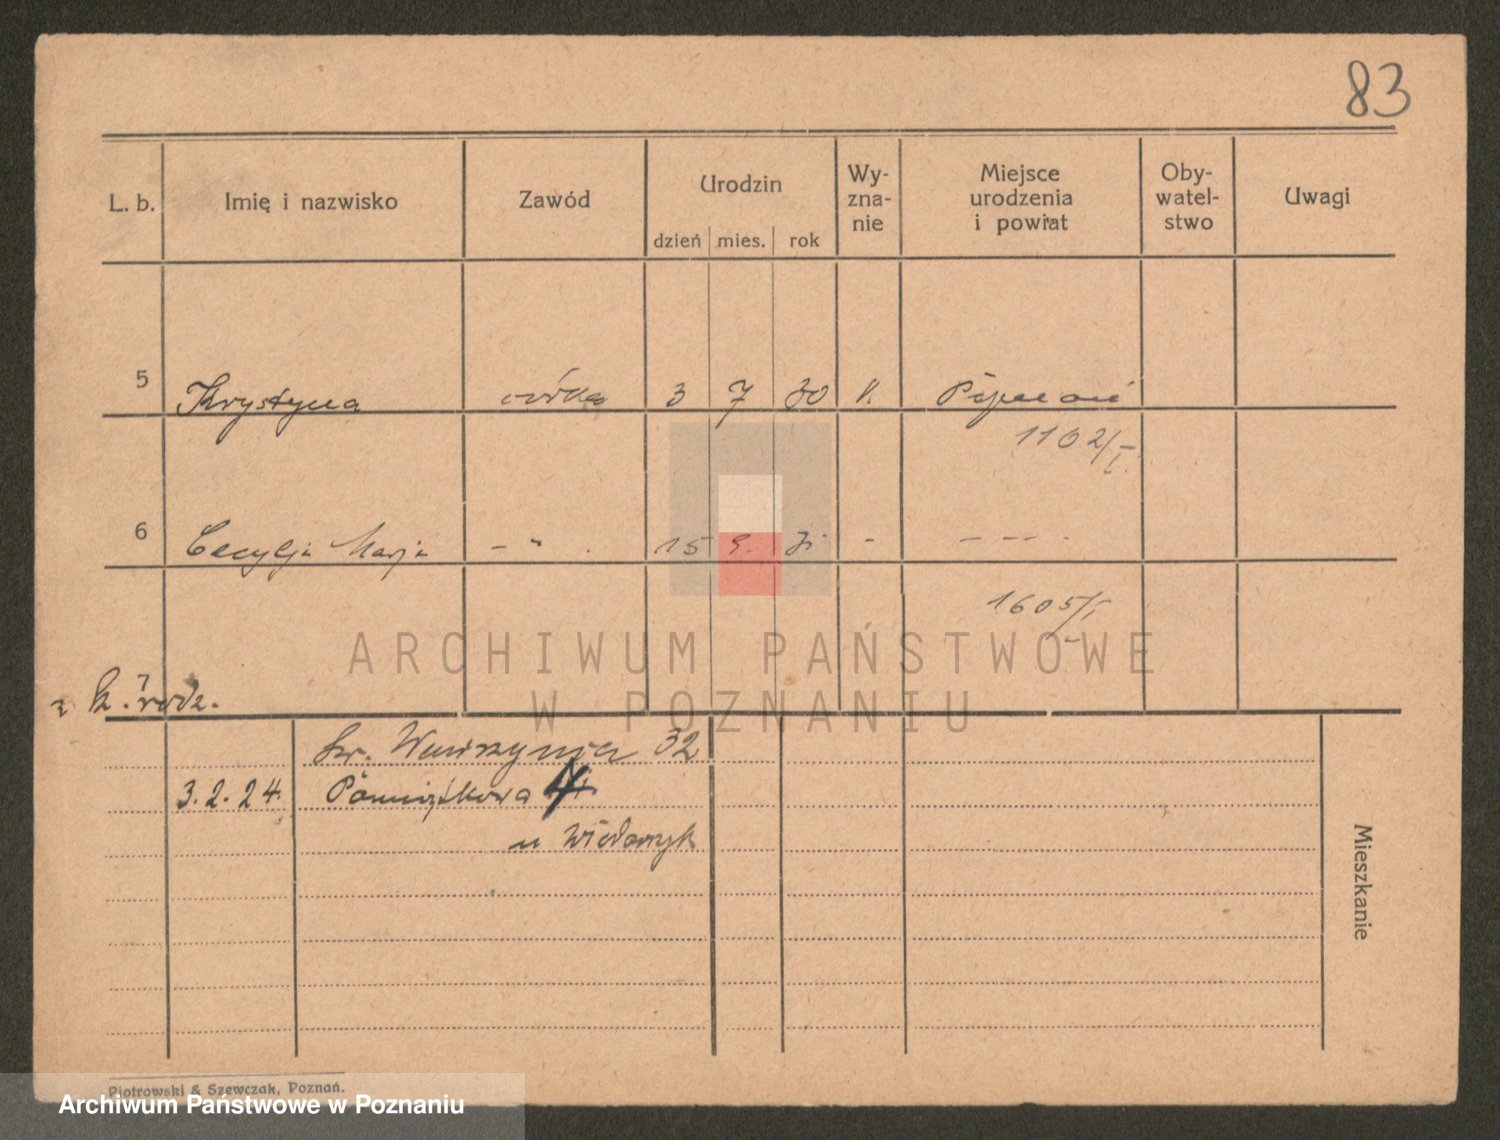 83
L. b. Imię i nazwisko Zawód Urodzin Wy-zna-nie Miejsce urodzenia i powiat Oby-watel-stwo Uwagi
dzień mies. rok
5 Krystyna córka 3 7 30 Poznań
1102/I.
6 Cecylja Marja - " . 15 9. 31 - - -- -
1605/I
z k. rodz.
7
św. Wawrzyńca 32
3.2.24. Pamiątkowa
u Widomyk
Mieszkanie
Piotrowski & Szewczak, Poznań.
ARCHIWUM PAŃSTWOWE
W POZNANIU
Archiwum Państwowe w Poznaniu